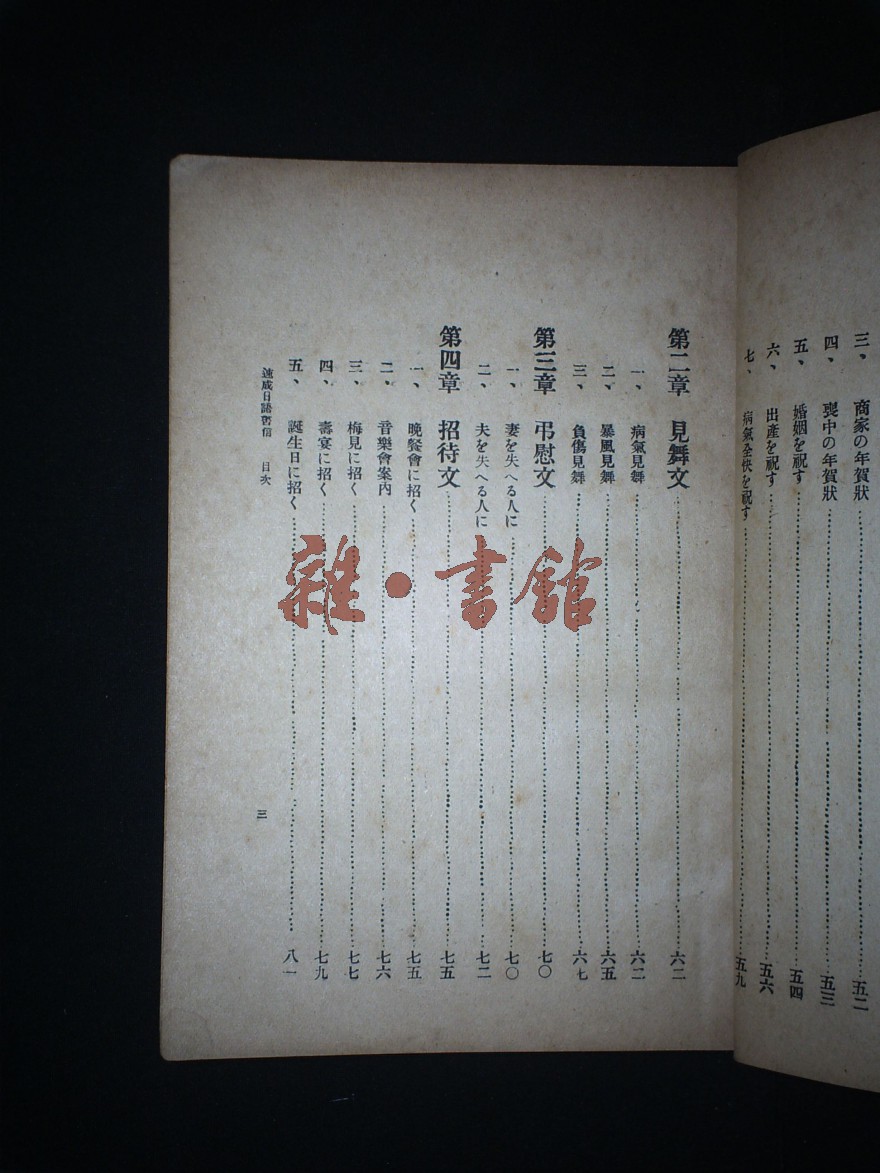 三、商家の年賀狀……五二
四、喪中の年賀狀……五三
五、婚姻を祝す……五四
六、出產を祝す……五六
七、病氣全快を祝す……五九
第二章 見舞文……六二
一、病氣見舞……六二
二、暴風見舞……六五
三、負傷見舞……六七
第三章 弔慰文……七〇
一、妻を失へる人に……七〇
二、夫を失へる人に……七二
第四章 招待文……七五
一、晩餐會に招く……七五
二、音樂會案內……七六
三、梅見に招く……七七
四、壽宴に招く……七九
五、誕生日に招く……八一
速成日語書信 目次
三
雜·書館